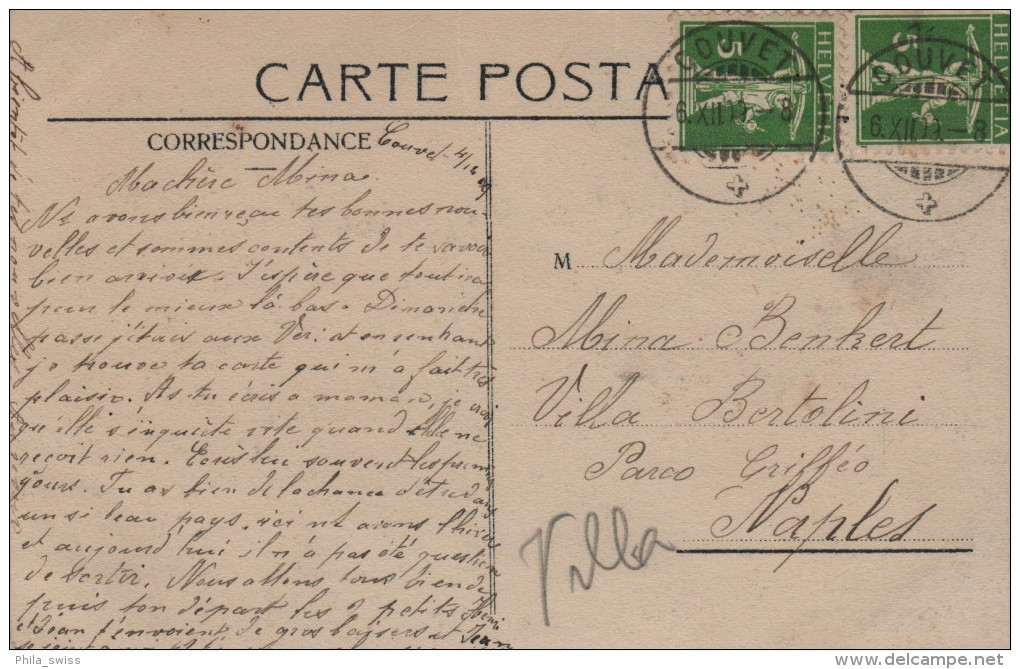 CARTE POSTA
CORRESPONDANCE
Couvet 4/12 09
Ma chère Mina
Ns avons bien reçu tes bonnes nou-
velles et sommes contents de te savoir
bien arrivée. J'espère que tout ira
pour le mieux là bas. Dimanche
passé j'étais aux Ver. et en rentrant
je trouve ta carte qui m'a fait très
plaisir. As-tu écris à maman, je crois
qu'elle s'inquiète vite quand elle ne
reçoit rien. Ecris lui souvent les premiers
jours. Tu as bien de la chance d'être dans
un si beau pays, ici nt avons l'hiver
et aujourd'hui il n'a pas été question
de sortir. Nous allons tous bien de
puis ton départ les 2 petits Henri
et Jean t'envoient de gros baisers et
Jean
HELVETIA
5
HELVETIA
5
COUVET
6.XII.09.-8
COUVET
6.XII.09.-8
M Mademoiselle
Mina Benkert
Villa Bertolini
Parco Grifféo
Naples
Villa
Phila_swiss